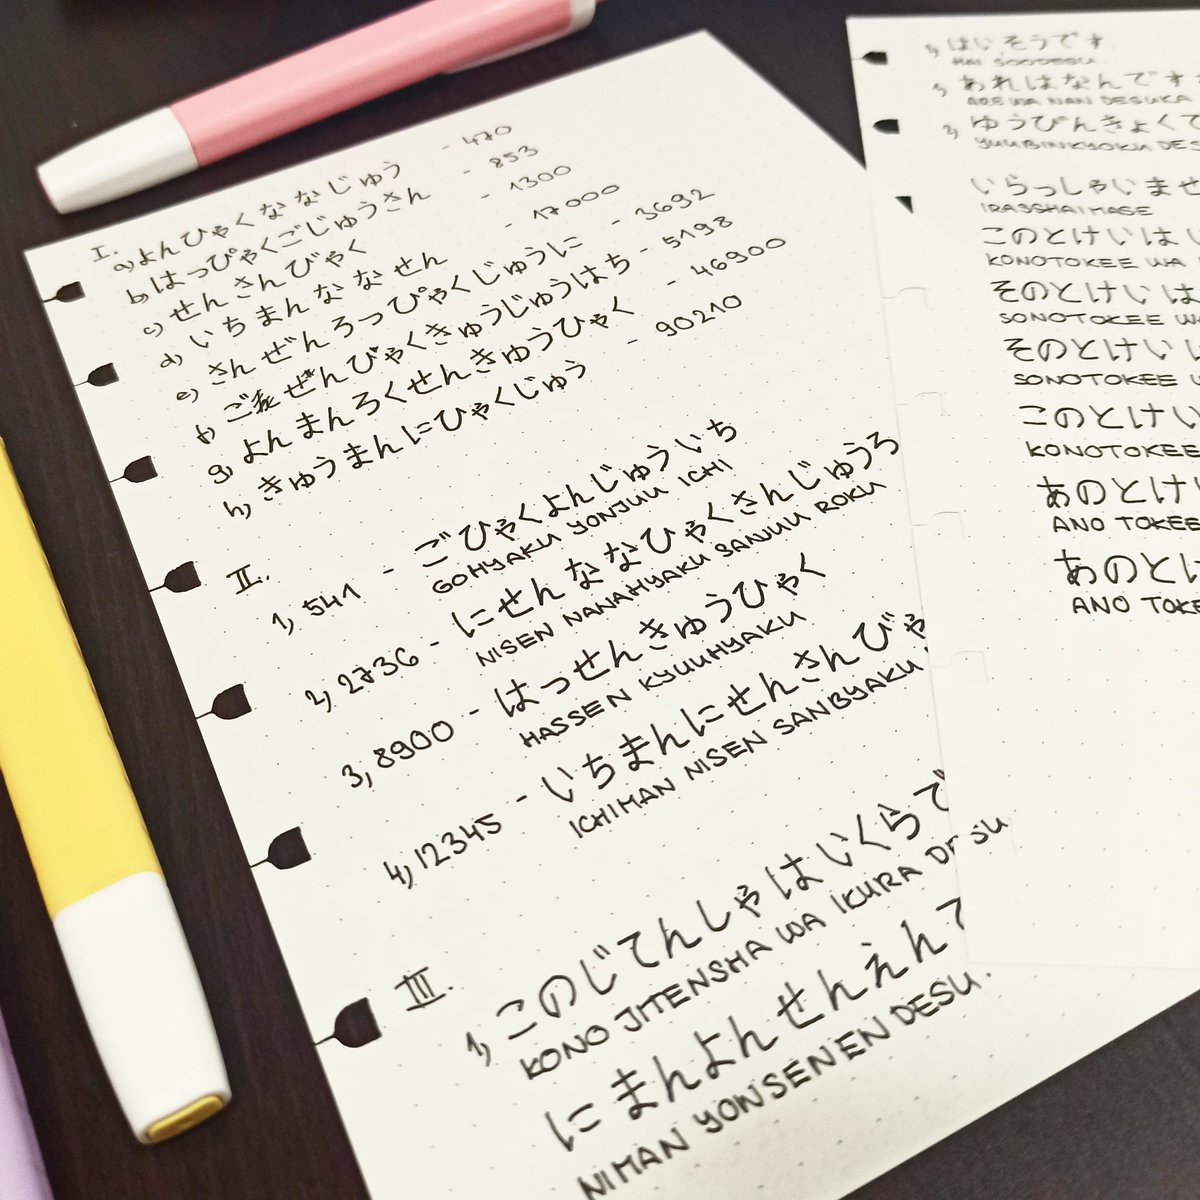 I.
a, よんひゃくななじゅう - 470
b, はっぴゃくごじゅうさん - 853
c, せんさんびゃく - 1300
d, いちまんななせん - 17000
e, さんぜんろっぴゃくきゅうじゅうに - 3692
f, ごせんひゃくきゅうじゅうはち - 5198
g, よんまんろくせんきゅうひゃく - 46900
h, きゅうまんにひゃくじゅう - 90210
II.
1, 541 - ごひゃくよんじゅういち
GOHYAKU YONJUU ICHI
2, 2736 - にせんななひゃくさんじゅうろ
NISEN NANAHYAKU SANJUU ROKU
3, 8900 - はっせんきゅうひゃく
HASSEN KYUUHYAKU
4, 12345 - いちまんにせんさんびゃ
ICHIMAN NISEN SANBYAKU
III.
1, このじてんしゃはいくらで
KONO JITENSHA WA IKURA DESU
にまんよんせんえんで
NIMAN YONSENEN DESU.
1, はいそうです
HAI SOODESU
2, あれはなんです
ARE WA NAN DESUKA
3, ゆうびんきょくで
YUUBINKYOKU DES
いらっしゃいませ
IRASSHAIMASE
このとけいはい
KONOTOKEE WA
そのとけいは
SONOTOKEE W
そのとけいは
SONOTOKEE
このとけい
KONOTOKEE
あのとけい
ANO TOKEE
あのとけ
ANO TOKE